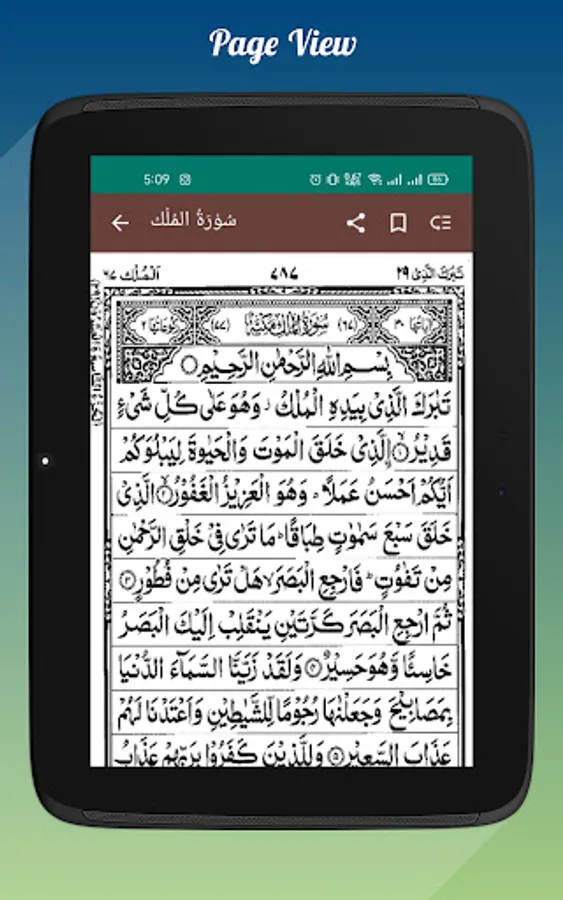 Page View
5:09
86
سُوْرَةُ المُلْك
تَبٰرَكَ الَّذِیْ ٢٩
٧٨٧
اَلْمُلْك ٦٧
اٰیَاتُهَا ٣٠
(٦٧) سُوْرَةُ الْمُلْكِ مَكِّیَّةٌ (٧٧)
رُكُوْعَاتُهَا ٢
بِسْمِ اللّٰهِ الرَّحْمٰنِ الرَّحِیْمِ
تَبٰرَكَ الَّذِیْ بِیَدِهِ الْمُلْكُ ز وَهُوَ عَلٰی كُلِّ شَیْءٍ
قَدِیْرُ ۝١ اۨلَّذِیْ خَلَقَ الْمَوْتَ وَالْحَیٰوةَ لِیَبْلُوَكُمْ
اَیُّكُمْ اَحْسَنُ عَمَلًا ؕ وَهُوَ الْعَزِیْزُ الْغَفُوْرُ ۝٢ الَّذِیْ
خَلَقَ سَبْعَ سَمٰوٰتٍ طِبَاقًا ؕ مَا تَرٰی فِیْ خَلْقِ الرَّحْمٰنِ
مِنْ تَفٰوُتٍ ؕ فَارْجِعِ الْبَصَرَ ۙ هَلْ تَرٰی مِنْ فُطُوْرٍ ۝٣
ثُمَّ ارْجِعِ الْبَصَرَ كَرَّتَیْنِ یَنْقَلِبْ اِلَیْكَ الْبَصَرُ
خَاسِئًا وَّهُوَ حَسِیْرٌ ۝٤ وَلَقَدْ زَیَّنَّا السَّمَآءَ الدُّنْیَا
بِمَصَابِیْحَ وَجَعَلْنٰهَا رُجُوْمًا لِّلشَّیٰطِیْنِ وَاَعْتَدْنَا لَهُمْ
عَذَابَ السَّعِیْرِ ۝٥ وَلِلَّذِیْنَ كَفَرُوْا بِرَبِّهِمْ عَذَابُ